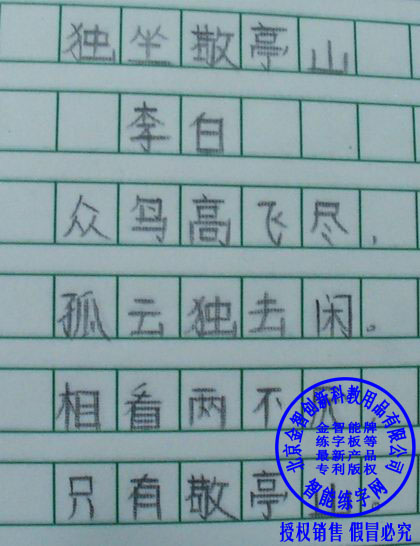 独坐敬亭山
李白
众鸟高飞尽，
孤云独去闲。
相看两不
只有敬亭
北京金智创新科教用品有限公司
金智能牌
练字板等
最新产品
专利版权
智能练字网
授权销售 假冒必究